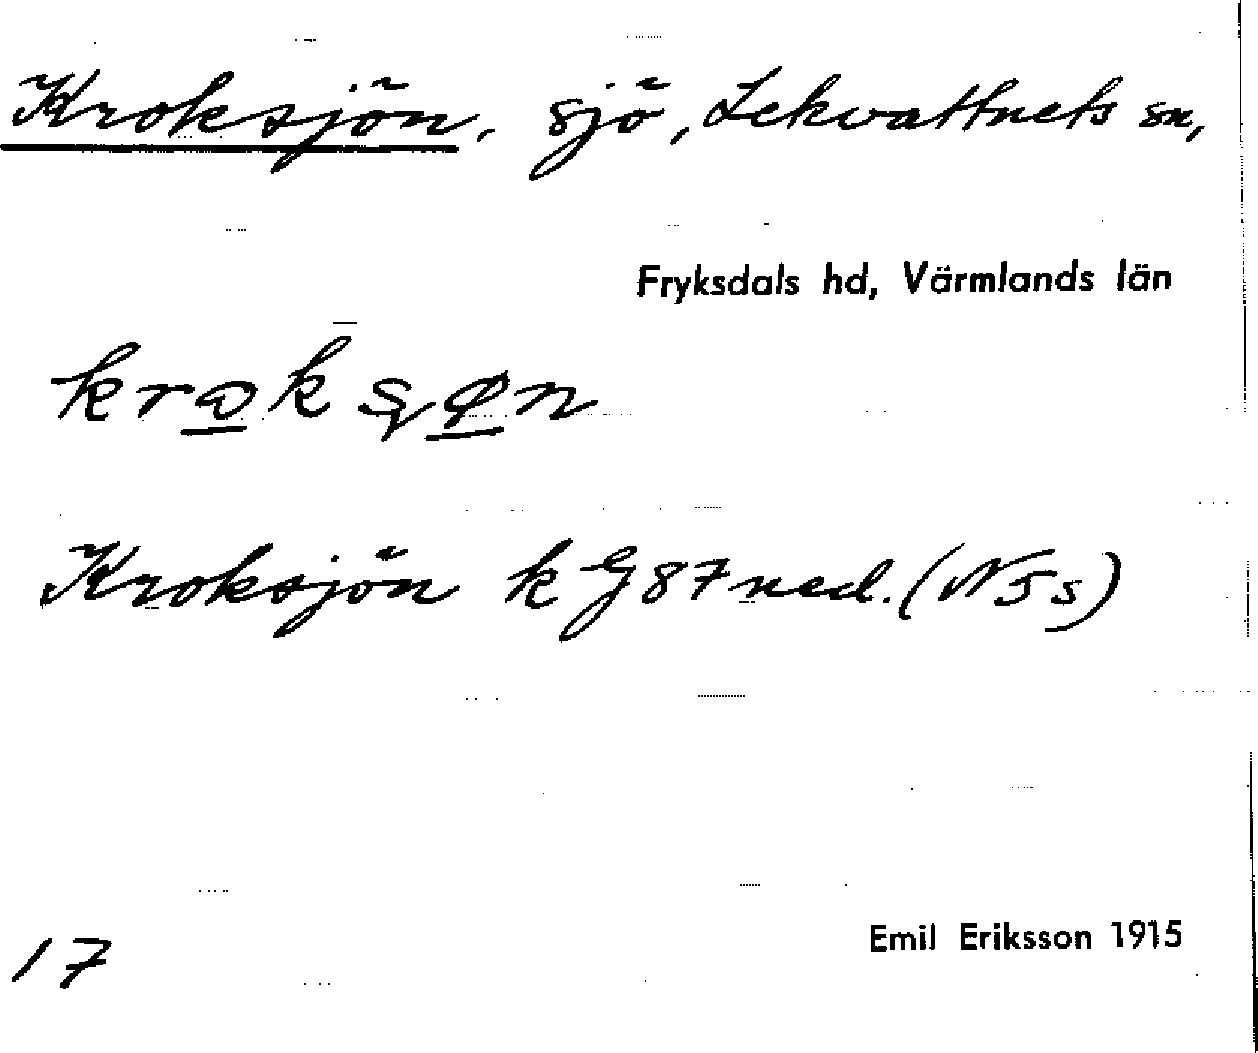 Kroksjön, sjö, Lekvattnets sn,
Fryksdals hd, Värmlands län
Kroksjön k G87ned. (N5s)
Emil Eriksson 1915
17